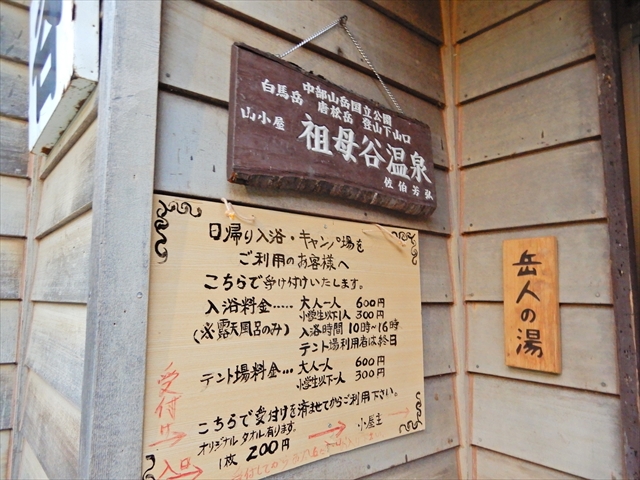 中部山岳国立公園
白馬岳 唐松岳 登山下山口
山小屋 祖母谷温泉
佐伯芳弘
日帰り入浴・キャンプ場を
ご利用のお客様へ
こちらで受け付けいたします。
入浴料金‥‥‥大人一人 600円
小学生以下1人 300円
(※露天風呂のみ) 入浴時間 10時~16時
テント場利用者は終日
テント場料金‥‥大人一人 600円
小学生以下一人 300円
こちらで受付けを済ませてからご利用下さい。
オリジナルタオル有ります。
1枚 200円
小屋主
受付
入口
岳人の湯